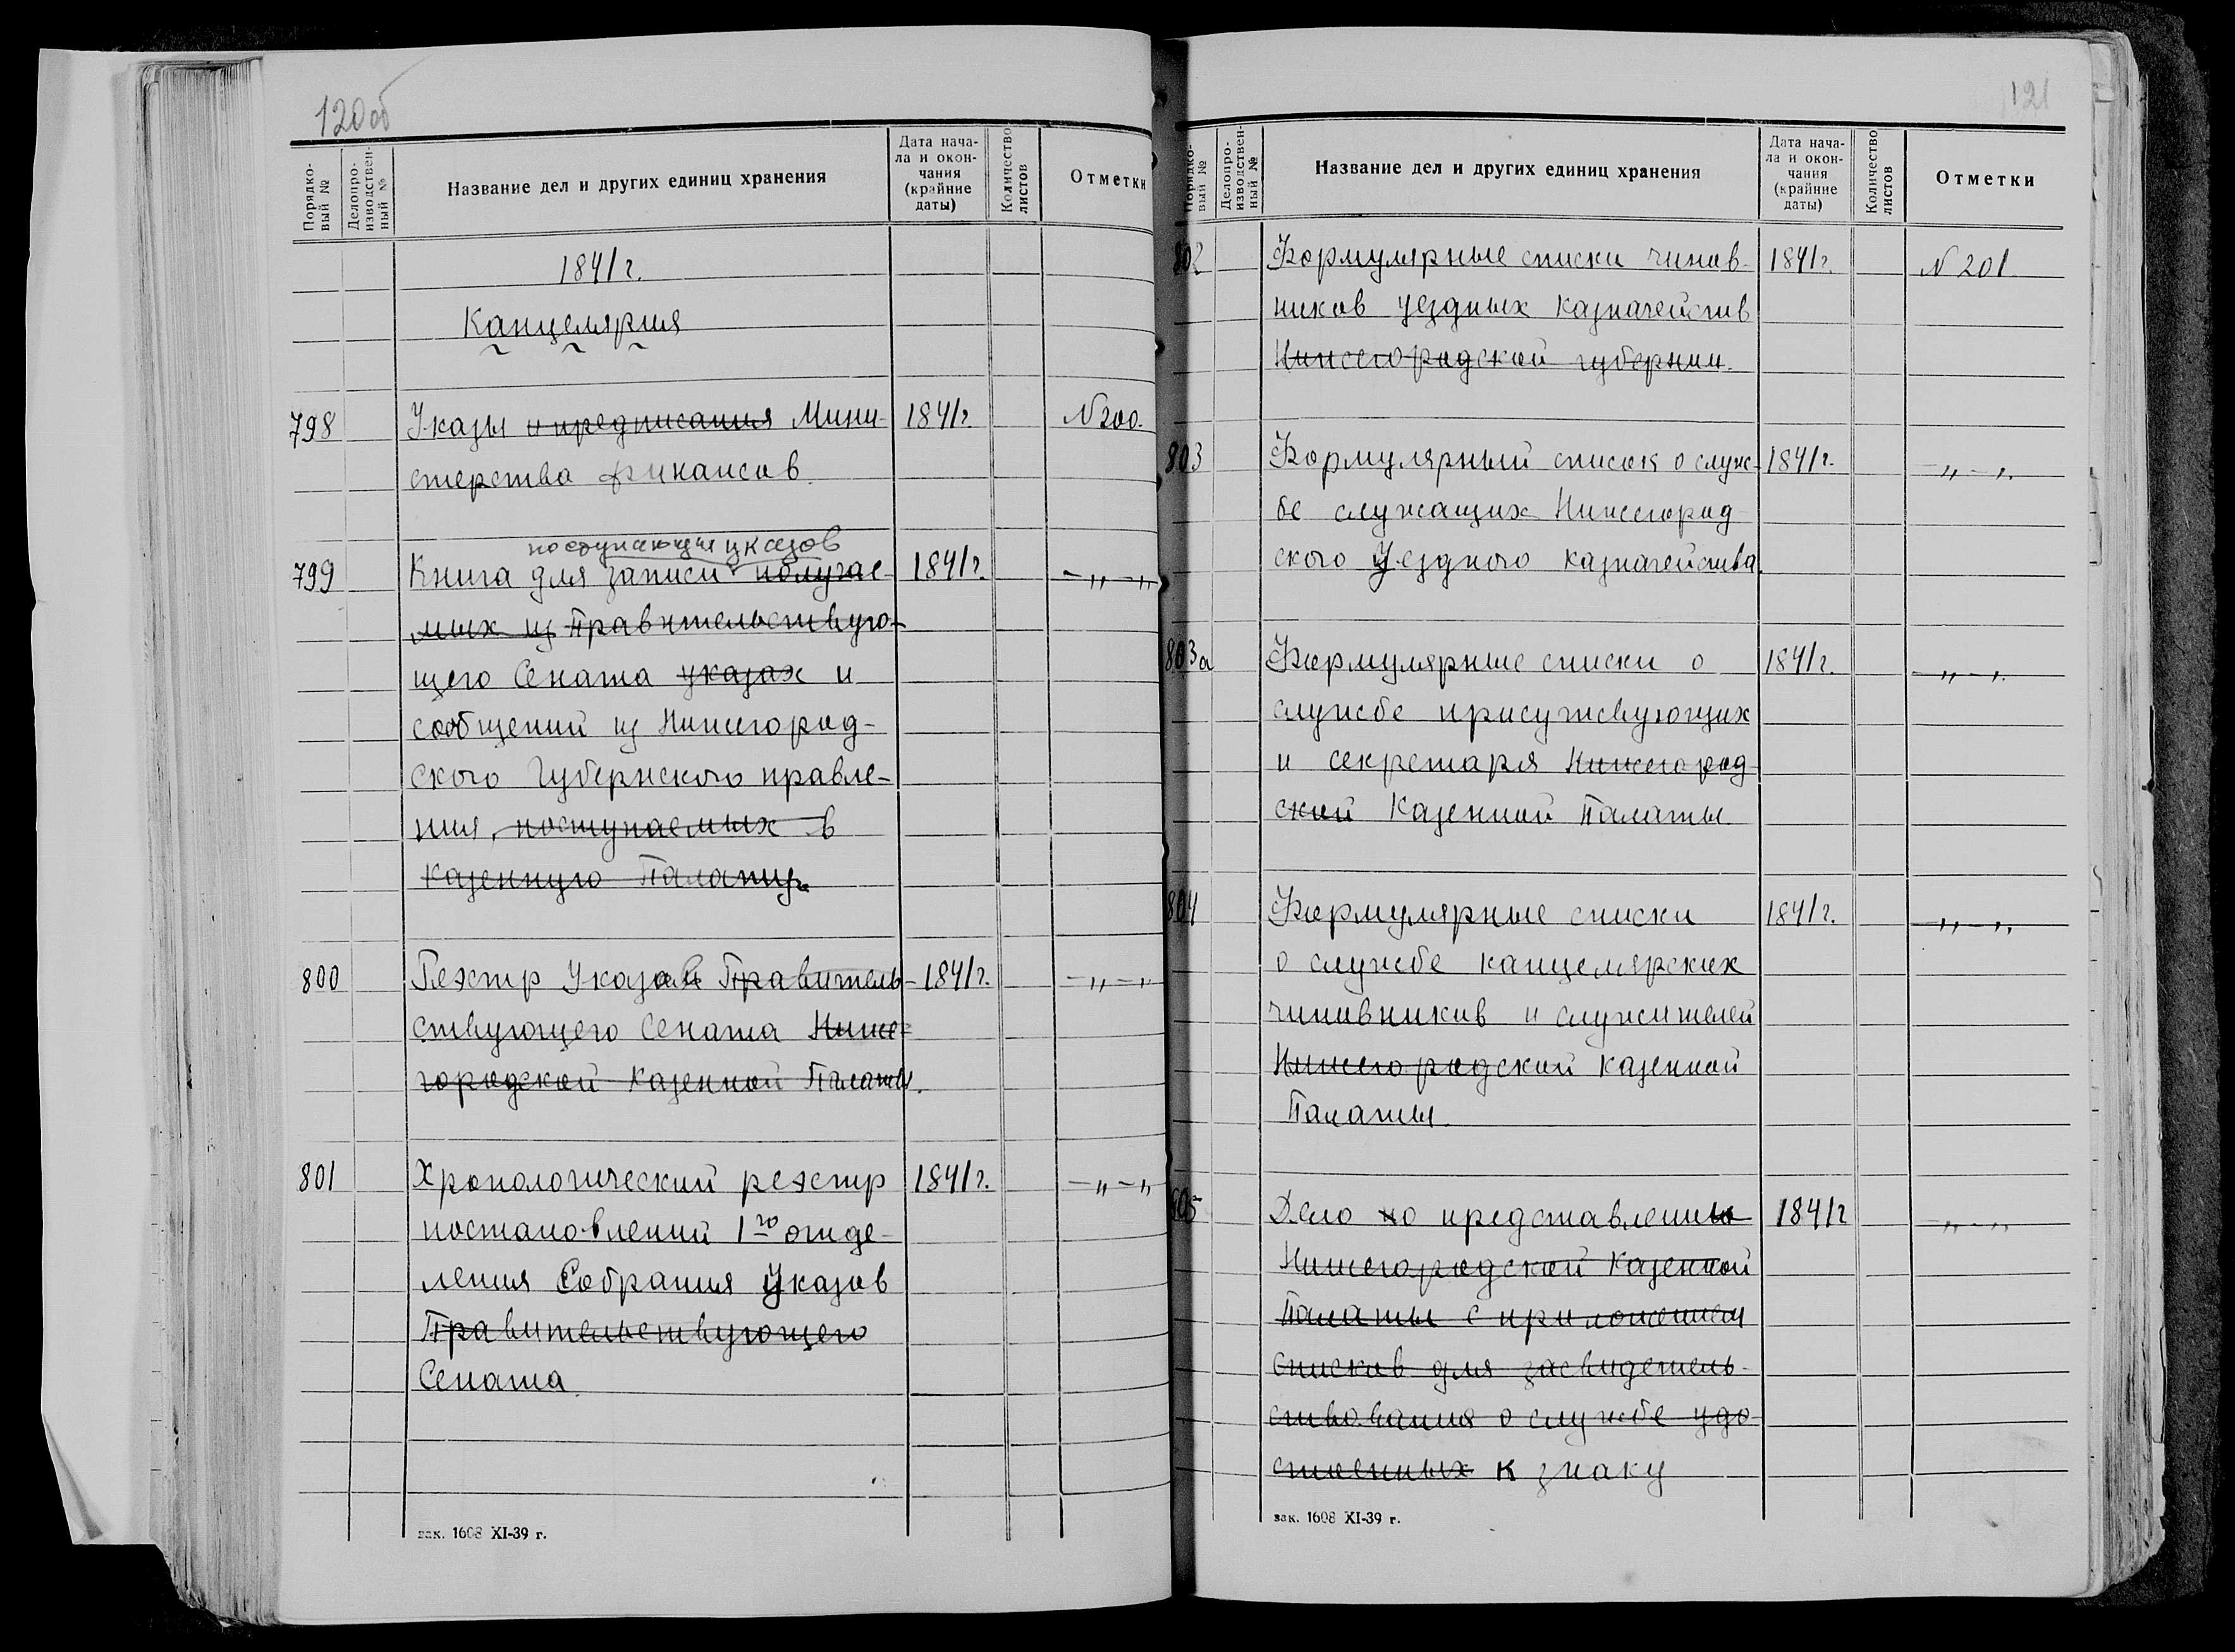 120об
Порядко-
вый №
Делопро-
изводствен-
ный №
Название дел и других единиц хранения
Дата нача-
ла и окон-
чания
(крайние
даты)
Количество
листов
Отметки
1841г.
Канцелярия
798
Указы и предписания Мини-
1841г.
N200.
стерства финансов.
поступающих указов
799
Книга для записи получае-
1841г.
-„-„
мых из Правительствую-
щего Сената указах и
сообщений из Нижегород-
ского Губернского правле-
ния, поступаемых в
Казенную Палату.
800
Реэстр Указов Правитель-
1841г.
-„-„
ствующего Сената Ниже-
городской Казенной Палаты.
801
Хронологический реэстр
1841г.
-„-„
постановлений 1го отде-
ления Собрания Указов
Правительствующего
Сената.
зак. 1608 XI-39 г.
121
Порядко-
вый №
Делопро-
изводствен-
ный №
Название дел и других единиц хранения
Дата нача-
ла и окон-
чания
(крайние
даты)
Количество
листов
Отметки
802
Формулярные списки чинов-
1841г.
N 201
ников уездных казначейств
Нижегородской губернии.
803
Формулярный список о служ-
1841г.
-„-„
бе служащих Нижегород-
ского Уездного казначейства.
803а
Формулярные списки о
1841г.
-„-„
службе присутствующих
и секретаря Нижегород-
ской Казенной Палаты.
804
Формулярные списки
1841г.
-„-„
о службе канцелярских
чиновников и служителей
Нижегородской Казенной
Палаты.
805
Дело о представлении
1841г
-„-„
Нижегородской Казенной
Палаты с приложением
списков для засвидетель-
ствования о службе удо-
стоенных к знаку
зак. 1608 XI-39 г.